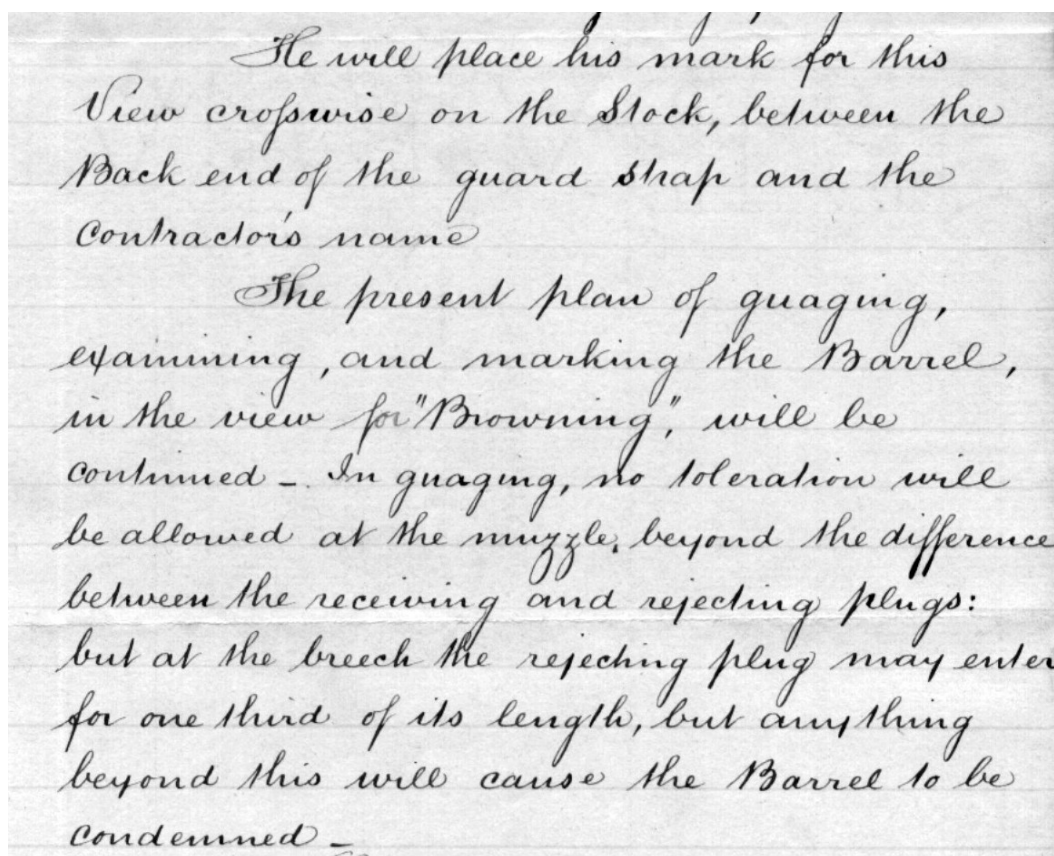 He will place his mark for this
View crosswise on the Stock, between the
Back end of the guard strap and the
Contractor's name
The present plan of guaging,
examining, and marking the Barrel,
in the view for "Browning", will be
continued – In guaging, no toleration will
be allowed at the muzzle, beyond the difference
between the receiving and rejecting plugs:
but at the breech the rejecting plug may enter
for one third of its length, but anything
beyond this will cause the Barrel to be
condemned –